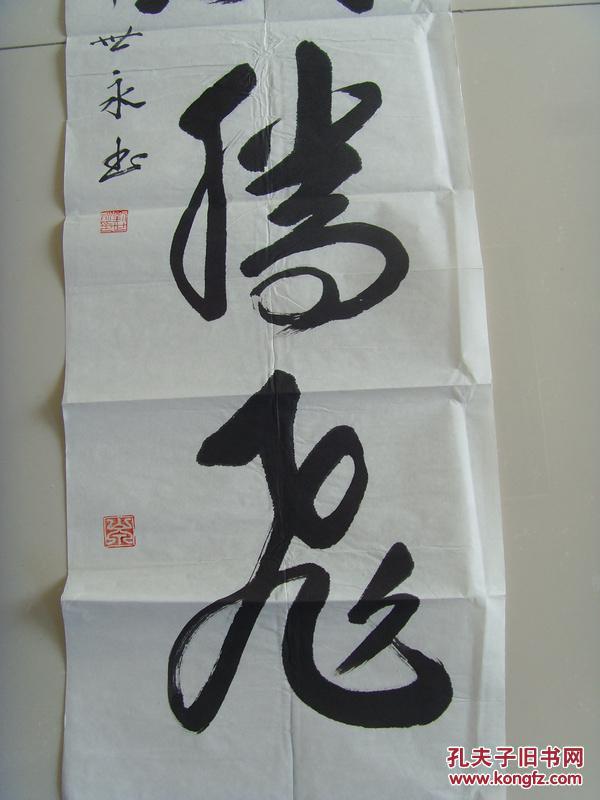 腾飞
世永书
孔夫子旧书网
www.kongfz.com